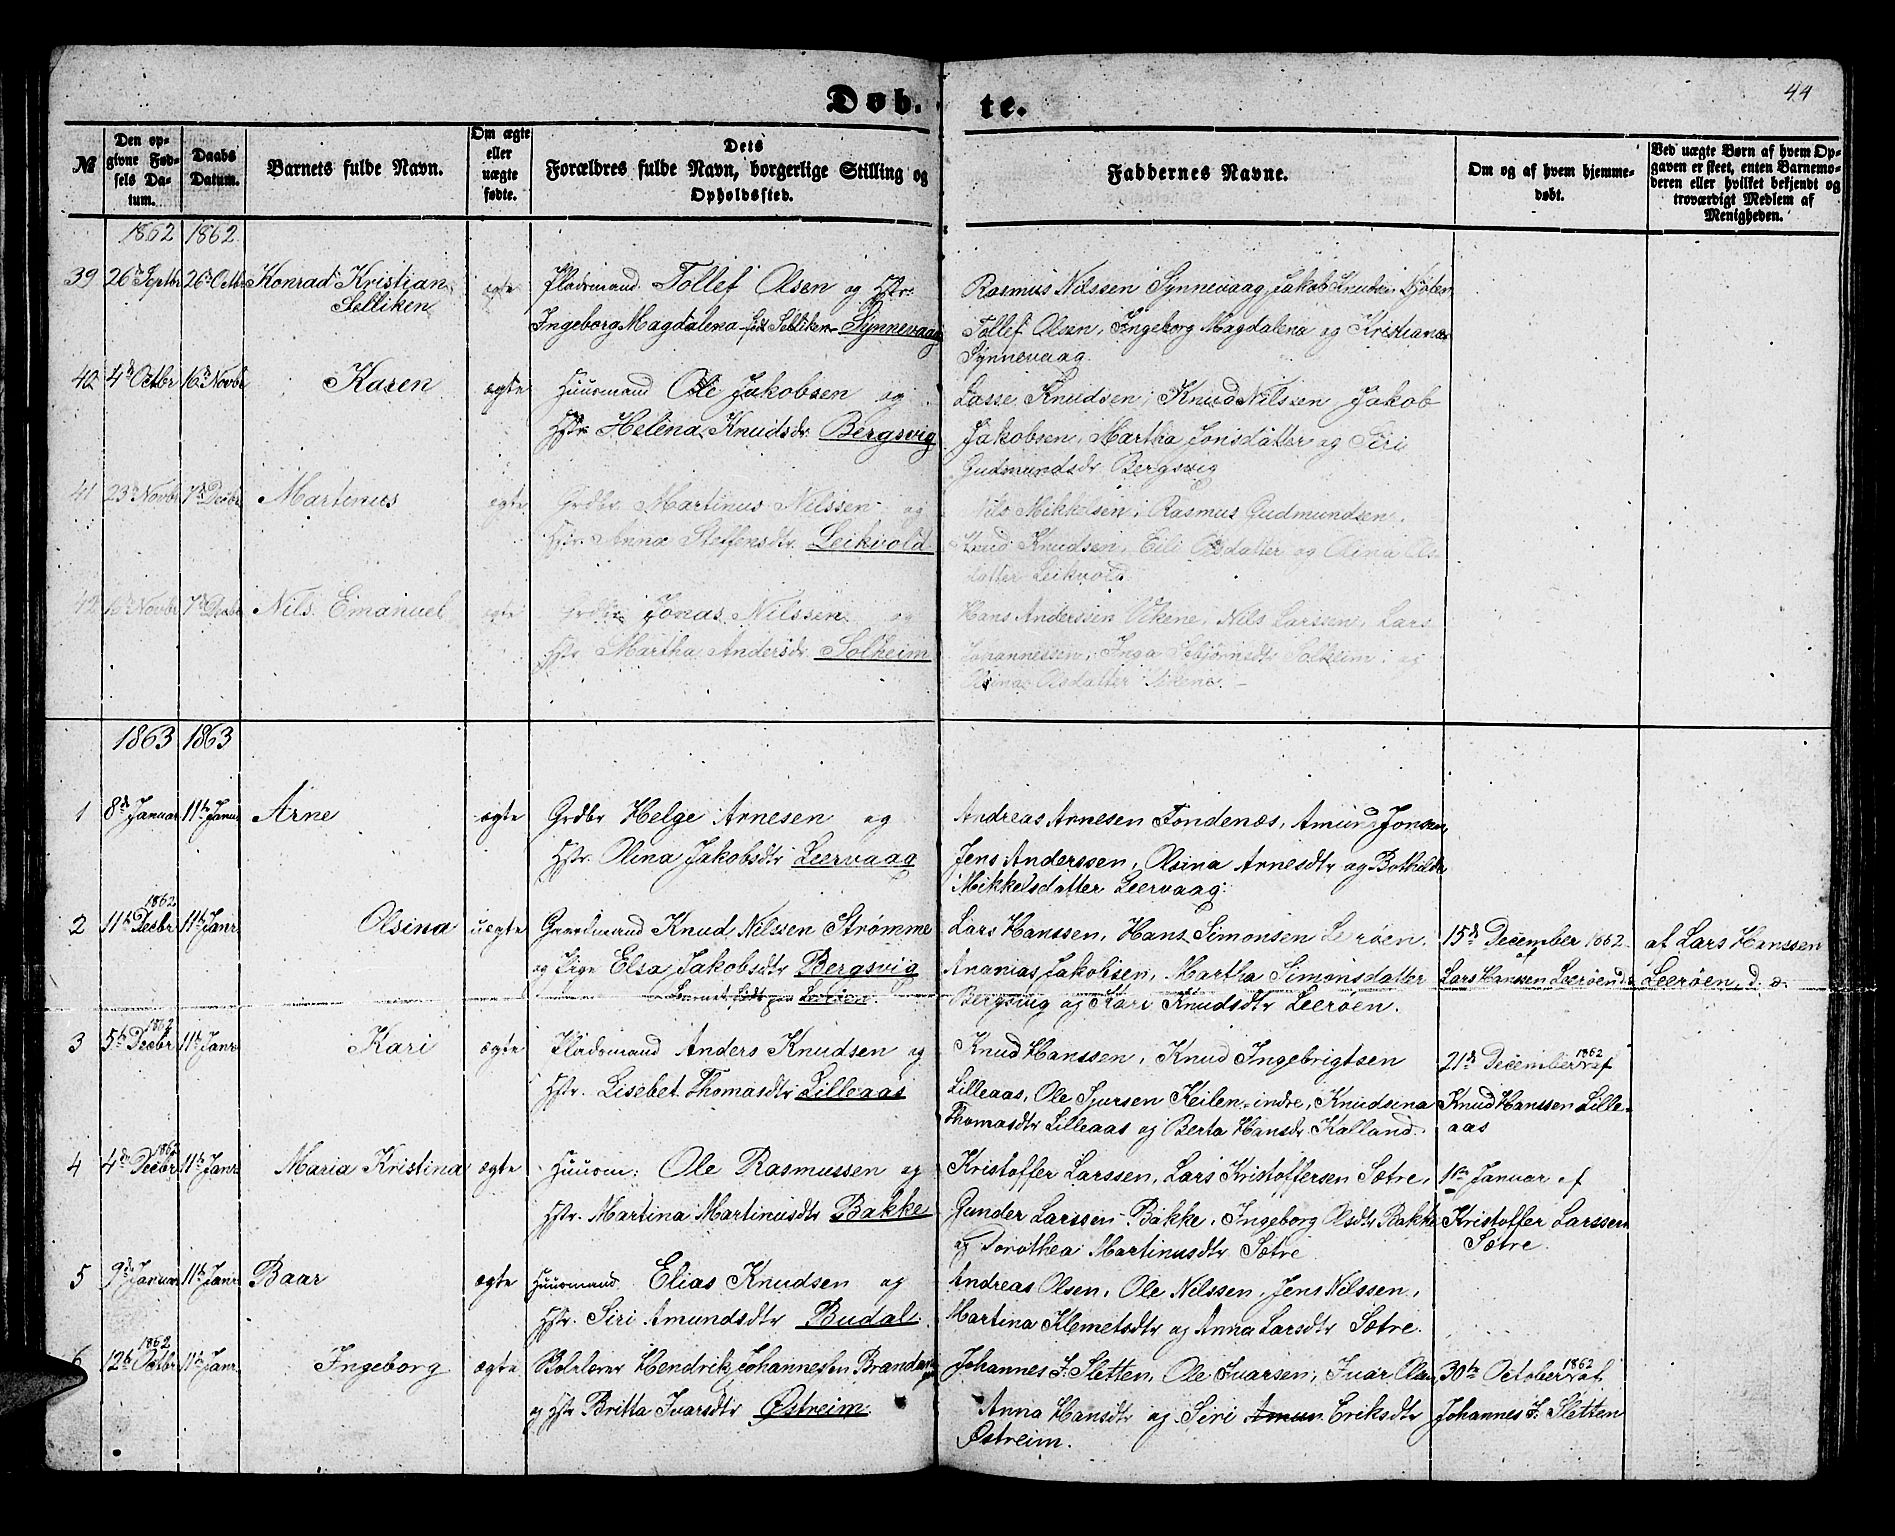 44
Døb- te.
№
Den opgivne Fødsels Datum.
Daabs Datum.
Barnets fulde Navn.
Om ægte eller uægte fødte.
Dets Forældres fulde Navn, borgerlige Stilling og Opholdssted.
Faddernes Navne.
Om og af hvem hjemmedøbt.
Ved uægte Børn af hvem Opgaven er skeet, enten Barnemoderen eller hvilket bekjendt og troværdigt Medlem af Menigheden.
1862 1862
39 26de Septbr 26de Octbr Konrad Kristian Selliken ægte Pladsmand Tollef Olsen og Hstr.
Ingeborg Magdalena født Selliken Synnevaag
Rasmus Nilssen Synnevaag, Jakob Knudsen
Tollef Olsen, Ingeborg Magdalena og Kristiana
Synnevaag
40 4de Octbr 16de Novbr Karen ægte Huusmand Ole Jakobsen og
Hstr. Helena Knudsdr Bergsvig
Lasse Knudsen, Knud Nilssen Jakob
Jakobsen, Martha Jonsdatter og Siri
Gudmundsdr Bergsvig
41 23de Novbr 7de Decbr Martinus ægte Grdbr Martinus Nilssen og
Hstr. Anna Steffensdtr. Leikvold
Nils Mikkelsen, Rasmus Gudmundsen,
Knud Knudsen, Eili Olsdatter og Olina Ols-
datter Leikvold
42 16de Novbr 7de Decbr Nils Emanuel ægte Grdbr Jonas Nilssen og
Hstr. Martha Andersdr. Solheim
Hans Anderssen Vikene, Nils Larssen, Lars
Johannessen, Inga Sebjørnsdtr Solheim, og
Olsina Olsdatter Vikene.
1863 1863
1 8de Januar 11te Januar Arne ægte Grdbr Helge Arnesen og
Hstr. Olina Jakobsdtr Leervaag
Andreas Arnesen Fondenæs, Amund Jonsen,
Jens Anderssen, Olsina Arnesdtr og Bothilda
Mikkelsdatter Leervaag.
2 11te Decbr 1862 11te Janr Olsina uægte Gaardmand Knud Nilssen Strømme
og Pige Elsa Jakobsdtr Bergsvig
Barnet født paa Leerøen.
Lars Hanssen, Hans Simonsen Leerøen.
Ananias Jakobsen, Martha Simonsdatter
Bergsvig og Kari Knudsdtr Leerøen.
15de December 1862 af
Lars Hanssen Leerøen
af Lars Hanssen
Leerøen, d. o.
3 5te Decbr 1862 11te Janr Kari ægte Pladsmand Anders Knudsen og
Hstr. Lisebet Thomasdtr Lilleaas
Knud Hanssen, Knud Ingebrigtsen
Lilleaas, Ole Sjursen Keilen indre, Knudsina
Thomasdtr Lilleaas og Berta Hansdr Kalland.
21de December 1862 af
Knud Hanssen Lille-
aas
4 4de Decbr 1862 11te Janr Maria Kristina ægte Huusm: Ole Rasmussen og
Hstr. Martina Martinusdtr Bakke
Kristoffer Larssen, Lars Kristoffersen Sætre,
Gunder Larssen Bakke, Ingeborg Olsdtr Bakke
og Dorothea Martinusdtr Sætre
1ste Januar af
Kristoffer Larssen
Sætre.
5 9de Januar 11te Janr Baar ægte Huusmand Elias Knudsen og
Hstr. Siri Amundsdtr Budal.
Andreas Olsen, Ole Nilssen, Jens Nilssen,
Martina Klemetsdtr og Anna Larsdtr Sætre.
6 12te Octbr 1862 11te Janr Ingeborg ægte Skolelærer Hendrik Johannessen Brandanger
og Hstr Britta Ivarsdtr Østreim
Johannes J. Sletten, Ole Ivarsen, Ivar Olsen,
Anna Hansdtr og Siri Amun Eriksdtr
Østreim.
30te October 1862 af
Johannes J. Sletten